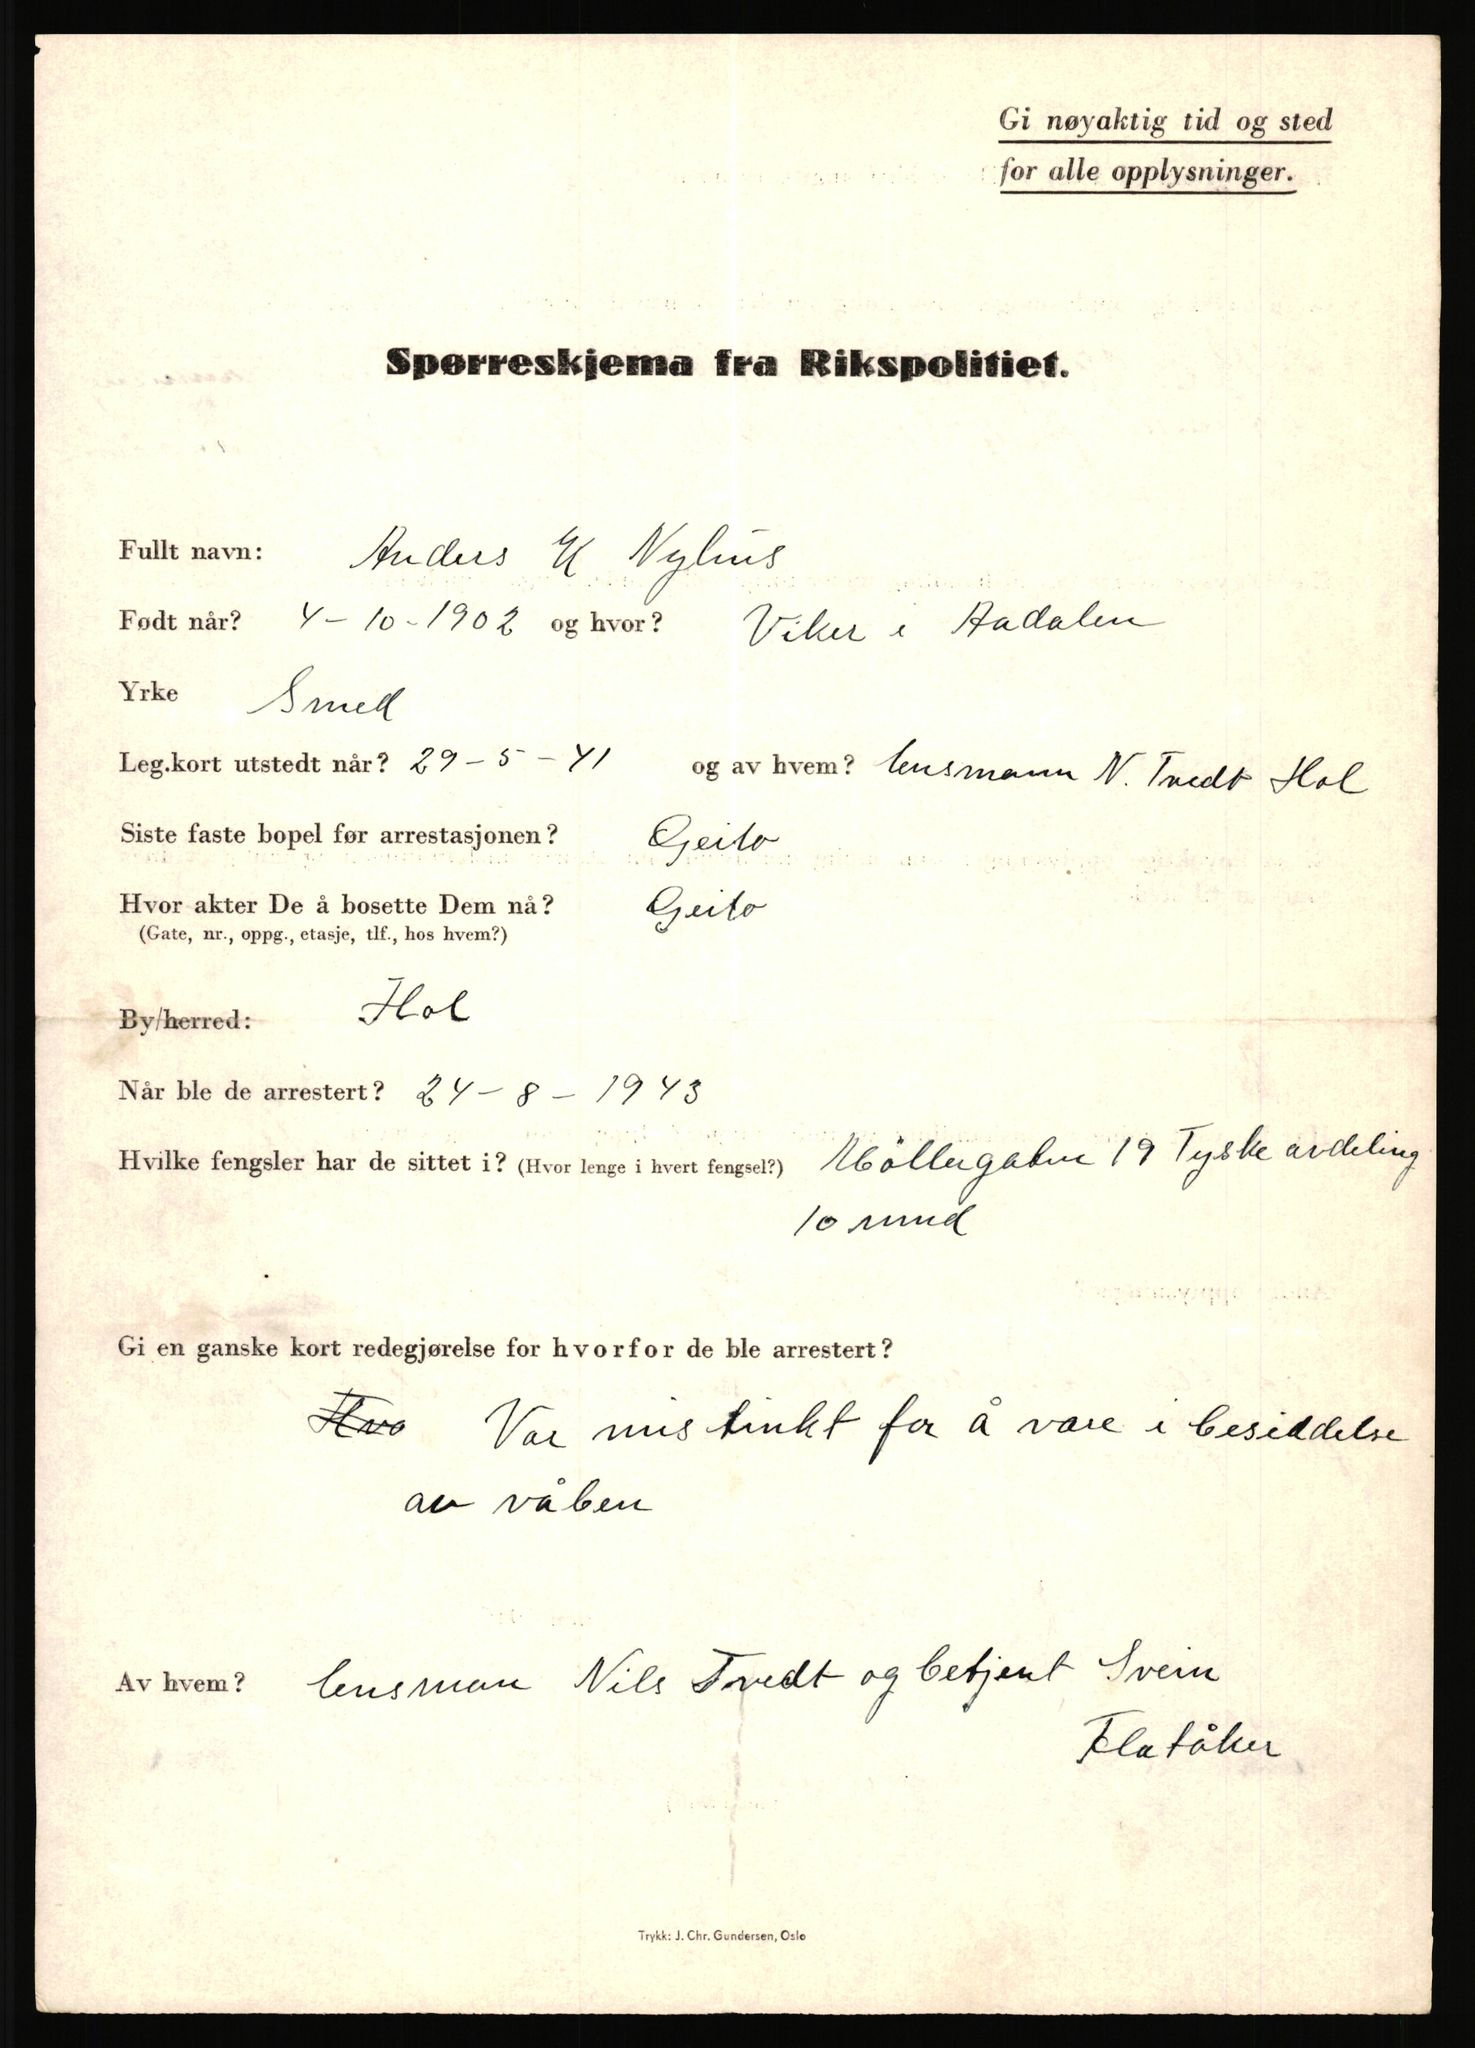 Gi nøyaktig tid og sted
for alle opplysninger.
Spørreskjema fra Rikspolitiet.
Fullt navn: Anders K Nylius
Født når? 4-10-1902 og hvor? Viker i Aadalen
Yrke Smed
Leg.kort utstedt når? 29-5-41 og av hvem? lensmann N. Tvedt Hol
Siste faste bopel før arrestasjonen? Geilo
Hvor akter De å bosette Dem nå? Geilo
(Gate, nr., oppg., etasje, tlf., hos hvem?)
By/herred: Hol
Når ble de arrestert? 24-8-1943
Hvilke fengsler har de sittet i? (Hvor lenge i hvert fengsel?) Möllergaten 19 Tyske avdeling
10 mnd
Gi en ganske kort redegjørelse for hvorfor de ble arrestert?
Hvo Var mistinkt for å være i besiddelse
av våben
Av hvem? lensman Nils Tvedt og betjent Svein
Flatåker
Trykk: J. Chr. Gundersen, Oslo